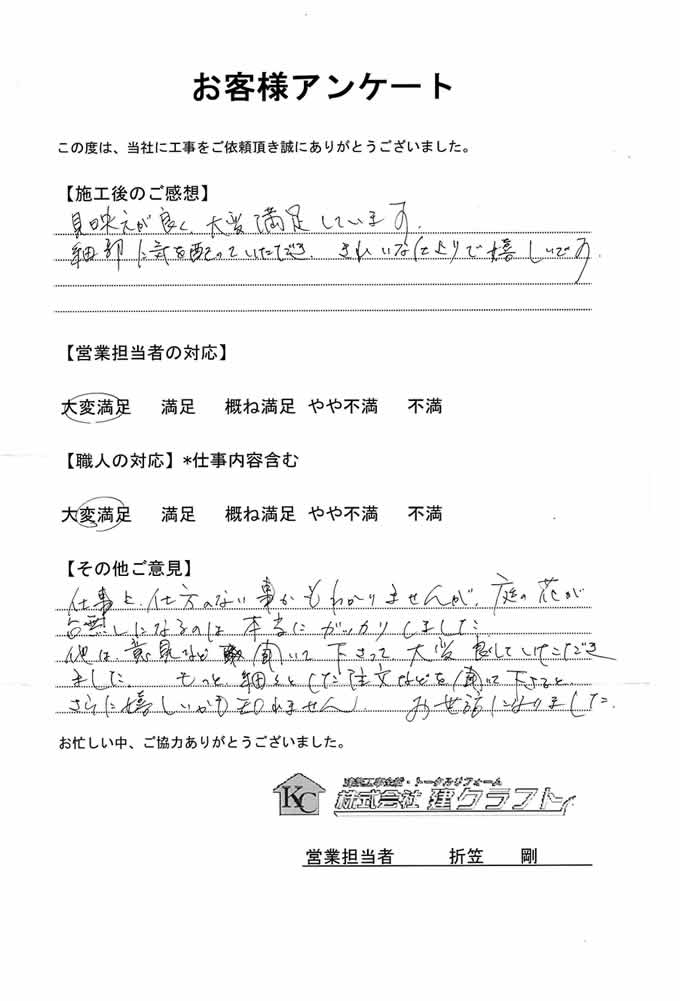 お客様アンケート
この度は、当社に工事をご依頼頂き誠にありがとうございました。
【施工後のご感想】
見映えが良く、大変満足しています。
細部に気を配っていただき、きれいな仕上りで嬉しいです。
【営業担当者の対応】
大変満足 満足 概ね満足 やや不満 不満
【職人の対応】*仕事内容含む
大変満足 満足 概ね満足 やや不満 不満
【その他ご意見】
仕事上、仕方のない事かもわかりませんが、庭の花が
台無しになるのは本当にガッカリしました
他は、意見など 聞いて下さって 大変 していただき
ました。 もっと、細々とした注文などを聞いて下さると
さらに嬉しいかも知れません。 お世話になりました。
お忙しい中、ご協力ありがとうございました。
KC
建築工事全般・トータルリフォーム
株式会社 建クラフト
営業担当者 折笠 剛